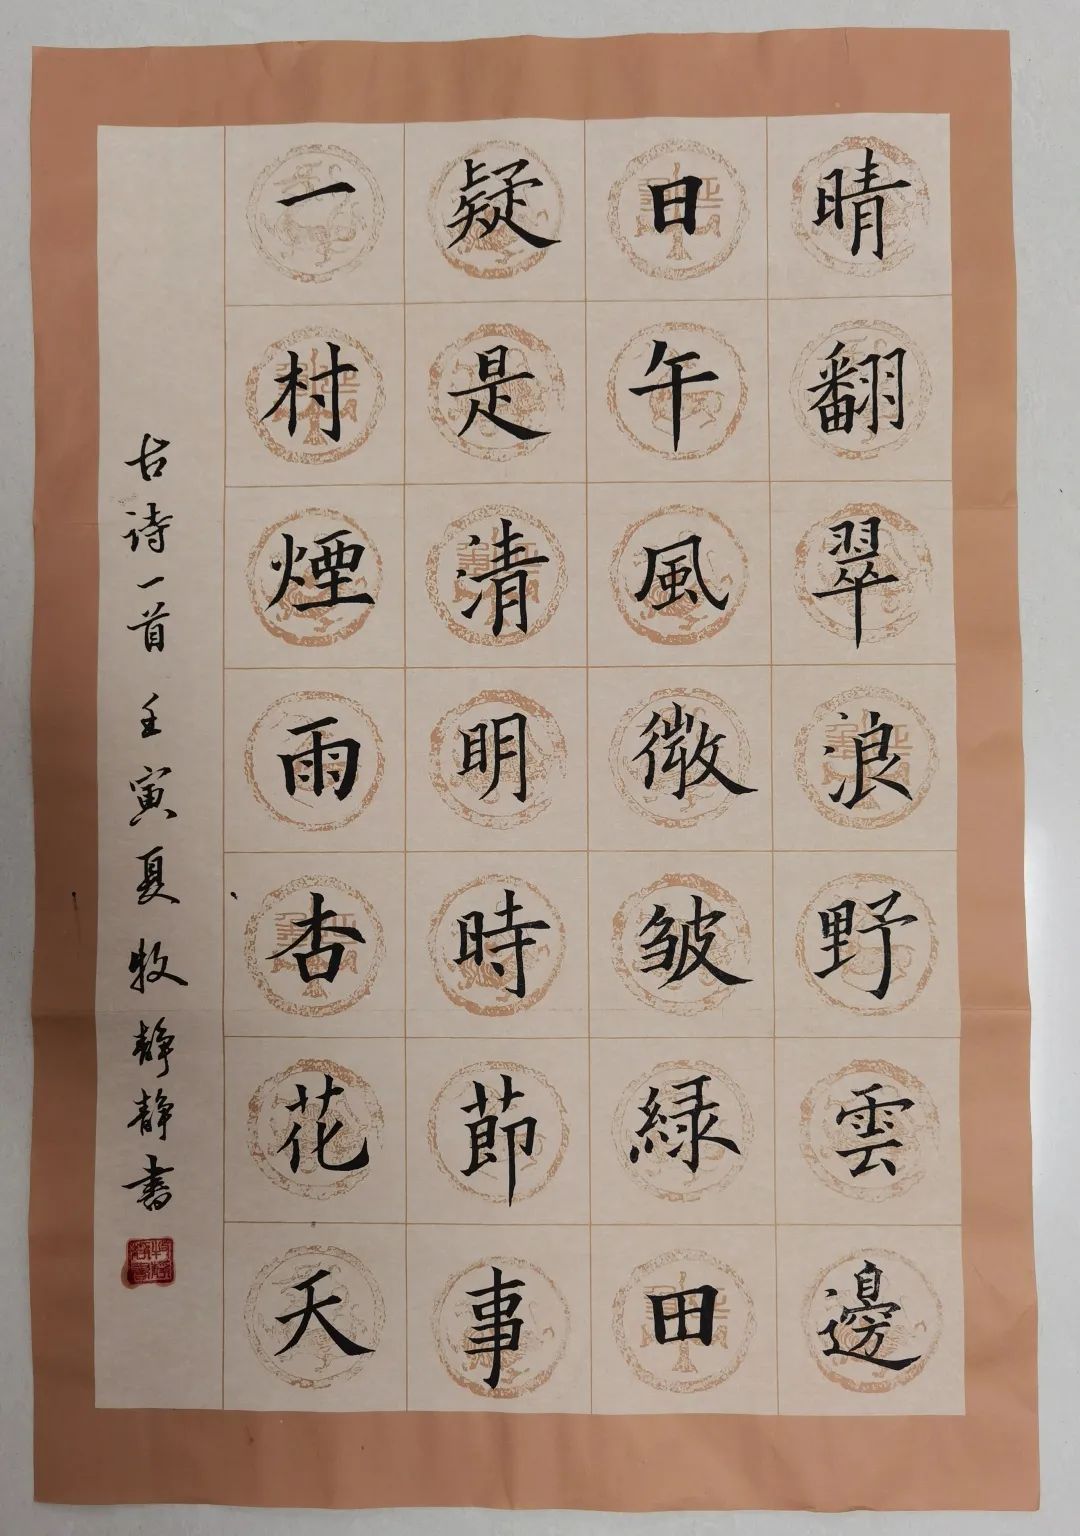 晴翻翠浪野雲邊
日午風微皺緑田
疑是清明時節事
一村煙雨杏花天
古诗一首 壬寅夏 牧静静书